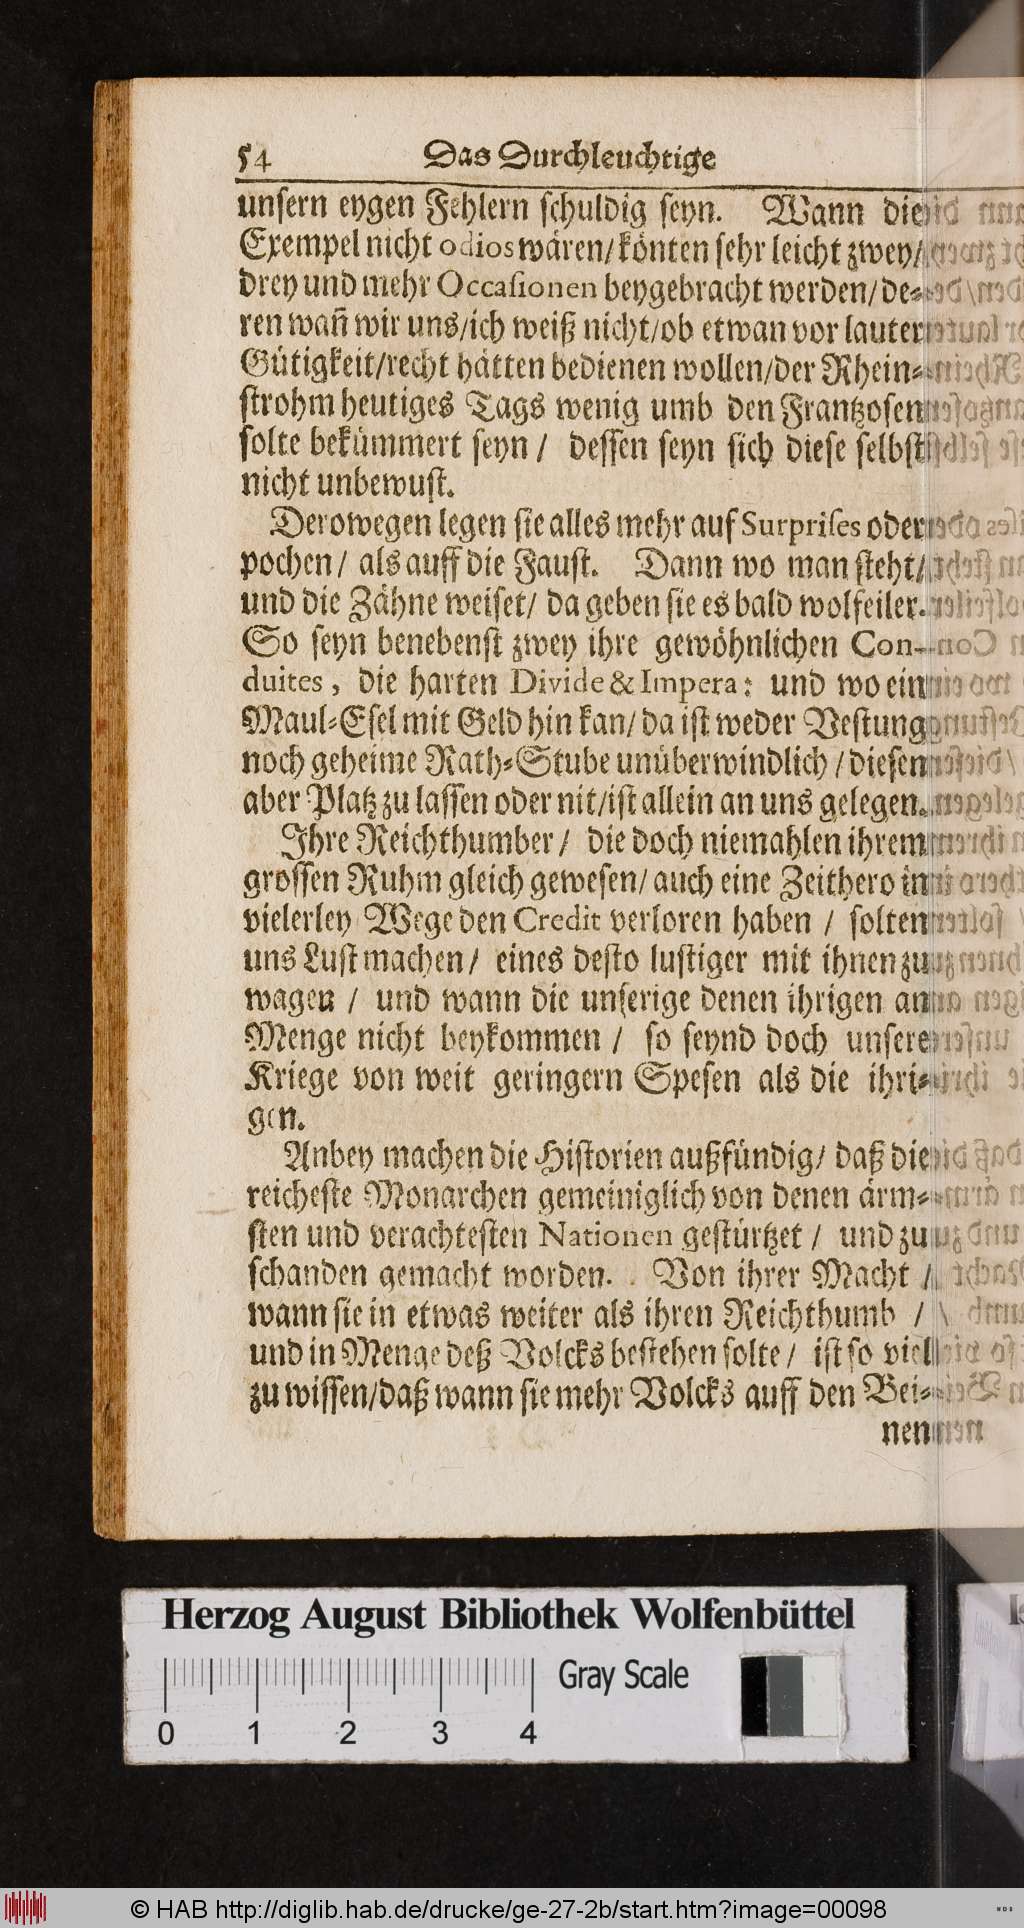 54 Das Durchleuchtige
unsern eygen Fehlern schuldig seyn. Wann die
Exempel nicht odios wären/ könten sehr leicht zwey/
drey und mehr Occasionen beygebracht werden/ de-
ren wañ wir uns/ich weiß nicht/ob etwan vor lauter
Gütigkeit/recht hätten bedienen wollen/der Rhein-
strohm heutiges Tags wenig umb den Frantzosen
solte bekümmert seyn / dessen seyn sich diese selbst
nicht unbewust.
Derowegen legen sie alles mehr auf Surprises oder
pochen / als auff die Faust. Dann wo man steht/
und die Zähne weiset/ da geben sie es bald wolfeiler.
So seyn benebenst zwey ihre gewöhnlichen Con-
duites, die harten Divide & Impera: und wo ein
Maul-Esel mit Geld hin kan/ da ist weder Vestung
noch geheime Rath-Stube unüberwindlich / diesen
aber Platz zu lassen oder nit/ist allein an uns gelegen.
Ihre Reichthumber / die doch niemahlen ihrem
grossen Ruhm gleich gewesen/ auch eine Zeithero in
vielerley Wege den Credit verloren haben / solten
uns Lust machen / eines desto lustiger mit ihnen zu
wagen / und wann die unserige denen ihrigen an
Menge nicht beykommen / so seynd doch unsere
Kriege von weit geringern Spesen als die ihri-
gen.
Anbey machen die Historien außfündig/ daß die
reicheste Monarchen gemeiniglich von denen ärm-
sten und verachtesten Nationen gestürtzet / und zu
schanden gemacht worden. Von ihrer Macht /
wann sie in etwas weiter als ihren Reichthumb /
und in Menge deß Volcks bestehen solte / ist so viel
zu wissen/daß wann sie mehr Volcks auff den Bei-
nen
Herzog August Bibliothek Wolfenbüttel
Gray Scale
0 1 2 3 4
© HAB http://diglib.hab.de/drucke/ge-27-2b/start.htm?image=00098